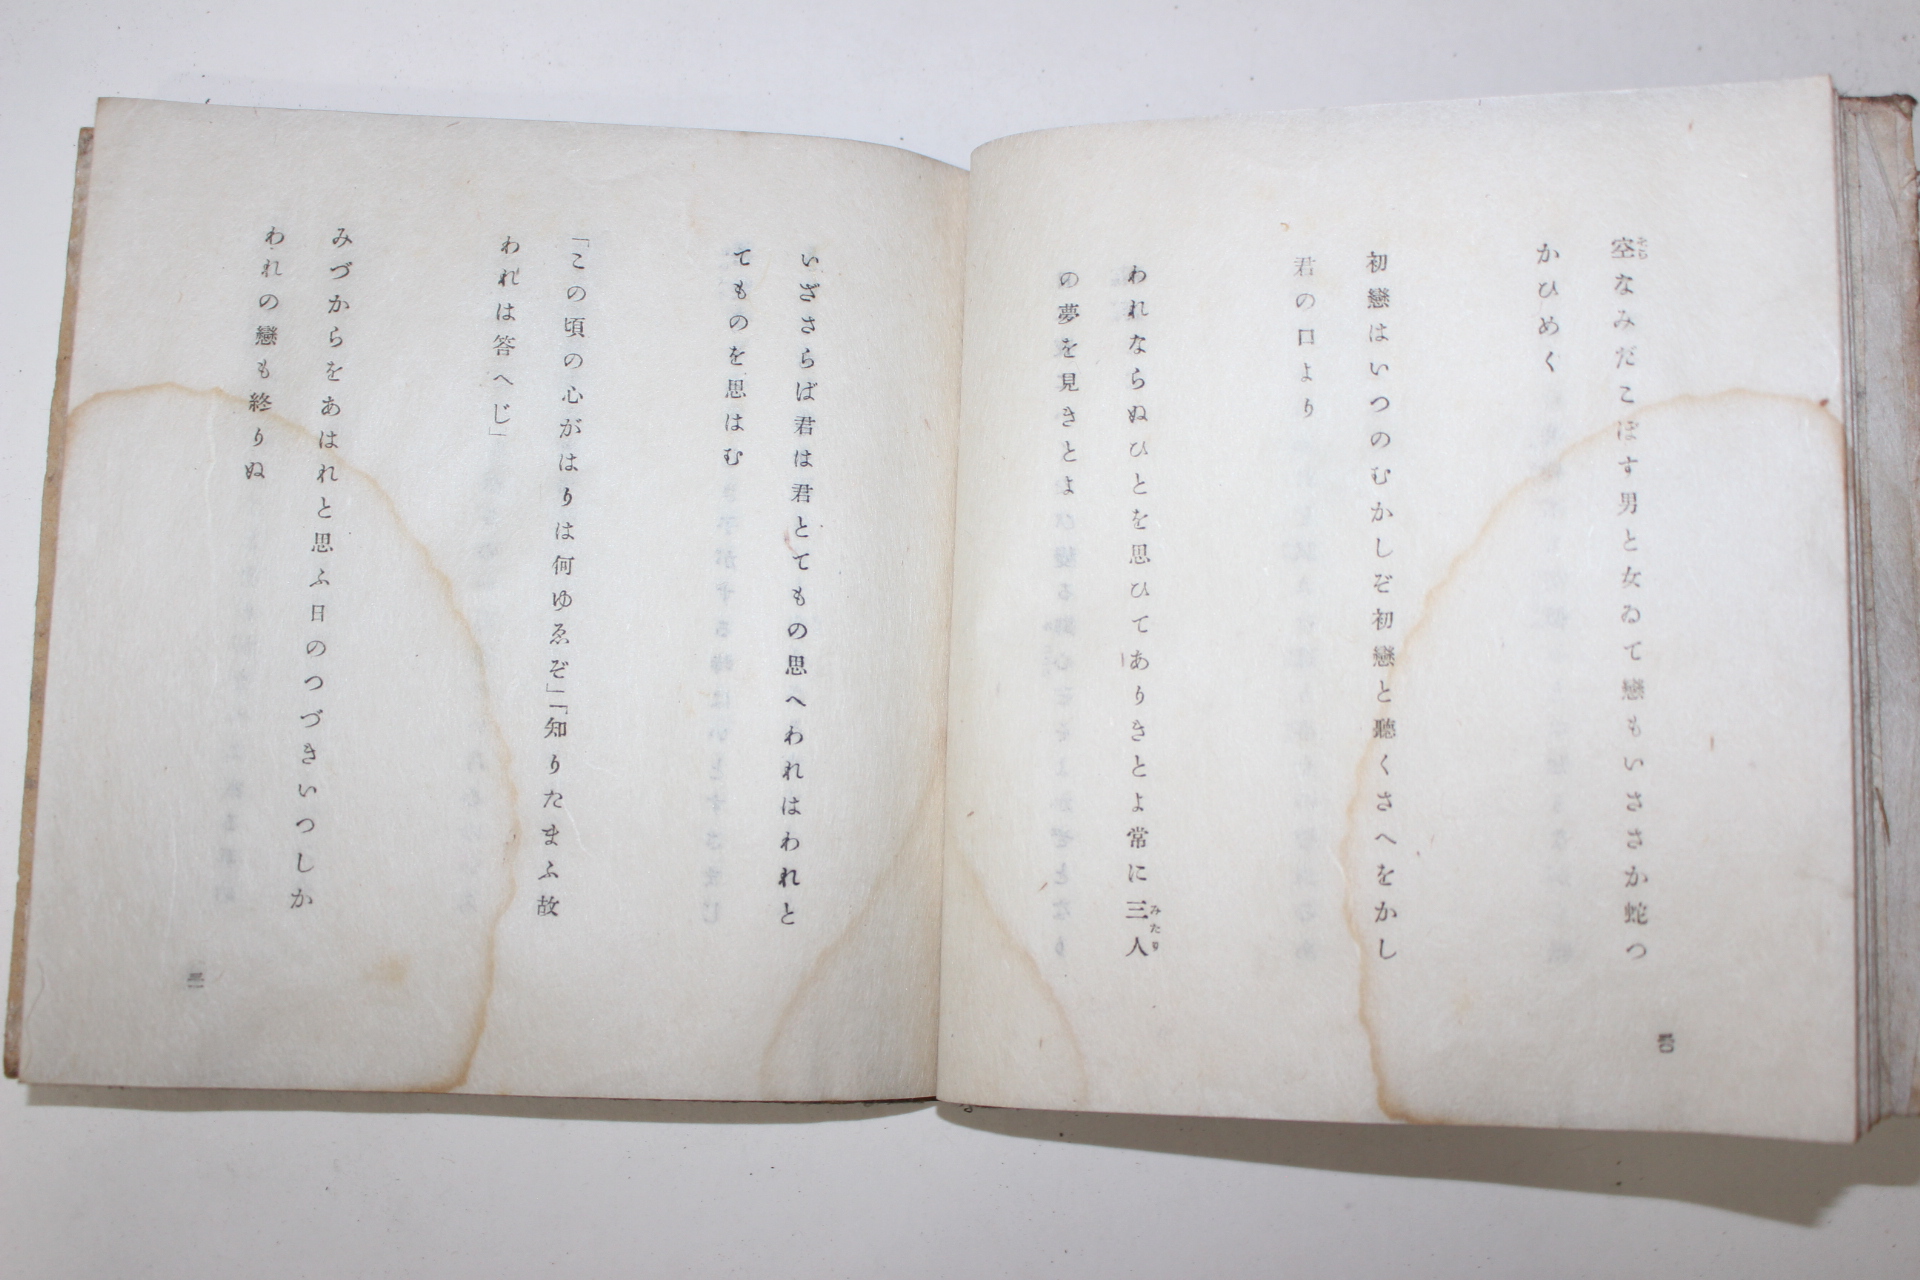 空なみだこぼす男と女ゐて戀もいささか蛇つ
かひめく
初戀はいつのむかしぞ初戀と聽くさへをかし
君の口より
われならぬひとを思ひてありきとよ常に三人
の夢を見きとよ
いざさらば君は君とてもの思へわれはわれと
てものを思はむ
「この頃の心がはりは何ゆゑぞ」「知りたまふ故
われは答へじ」
みづからをあはれと思ふ日のつづきいつしか
われの戀も終りぬ